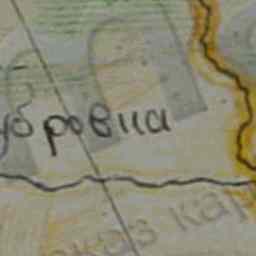 убровна
оказ кар